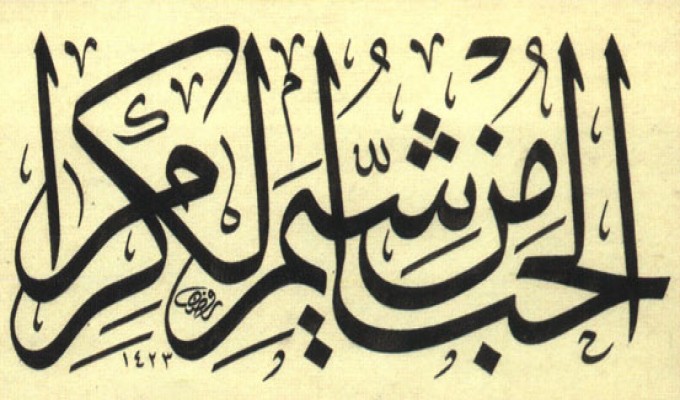 الحب من شيم الكرام
١٤٢٣